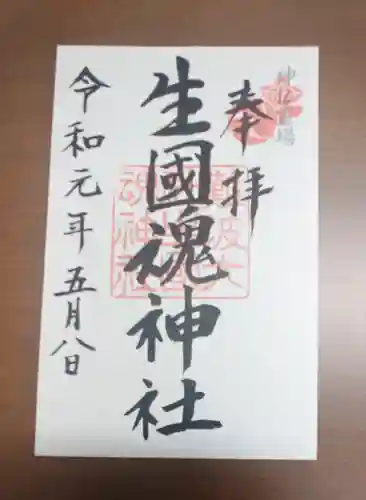 神仏霊場
奉拝
生國魂神社
令和元年五月八日